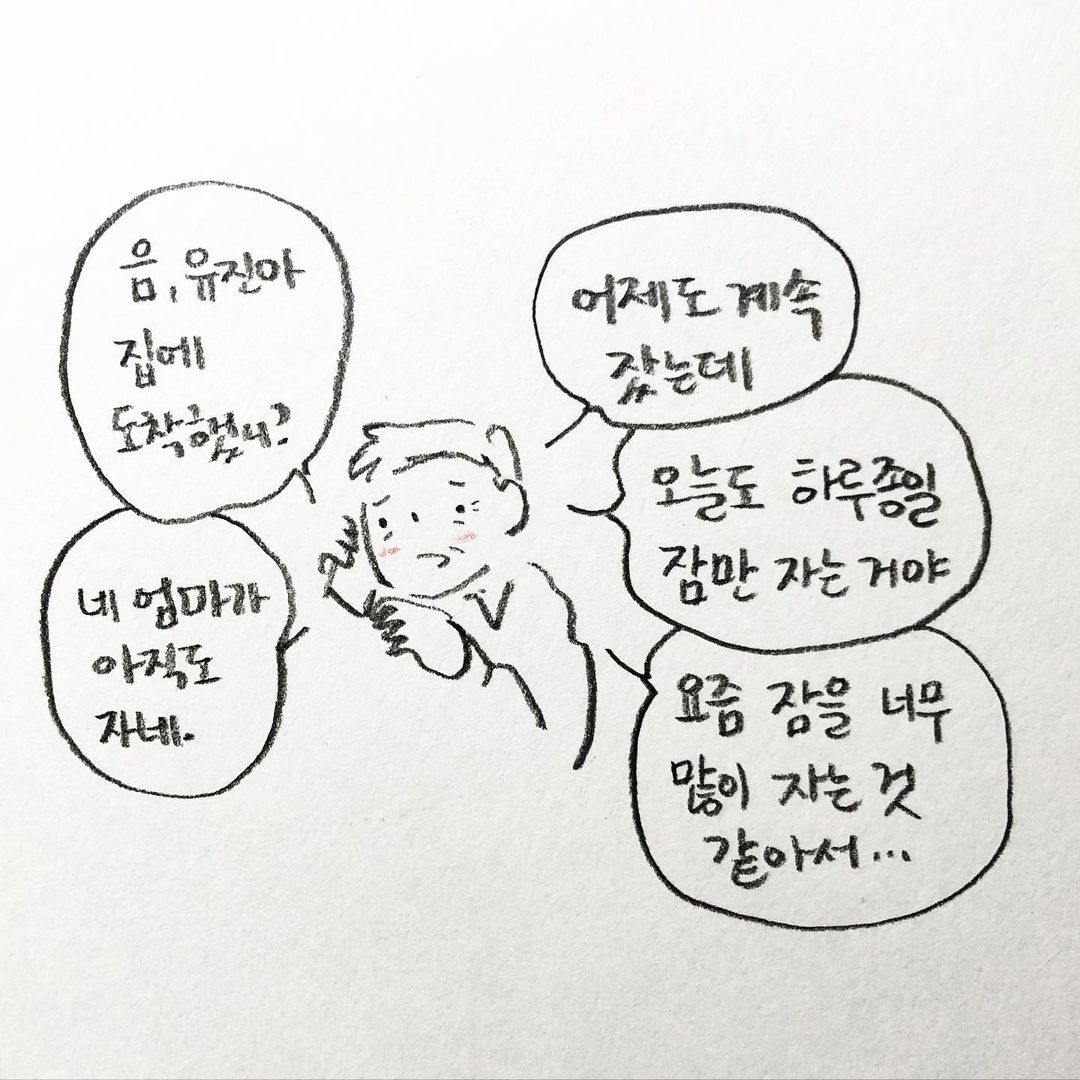 음, 유진아
집에
도착했니?
네 엄마가
아직도
자네.
어제도 계속
잤는데
오늘도 하루종일
잠만 자는거야
요즘 잠을 너무
많이 자는 것
같아서...